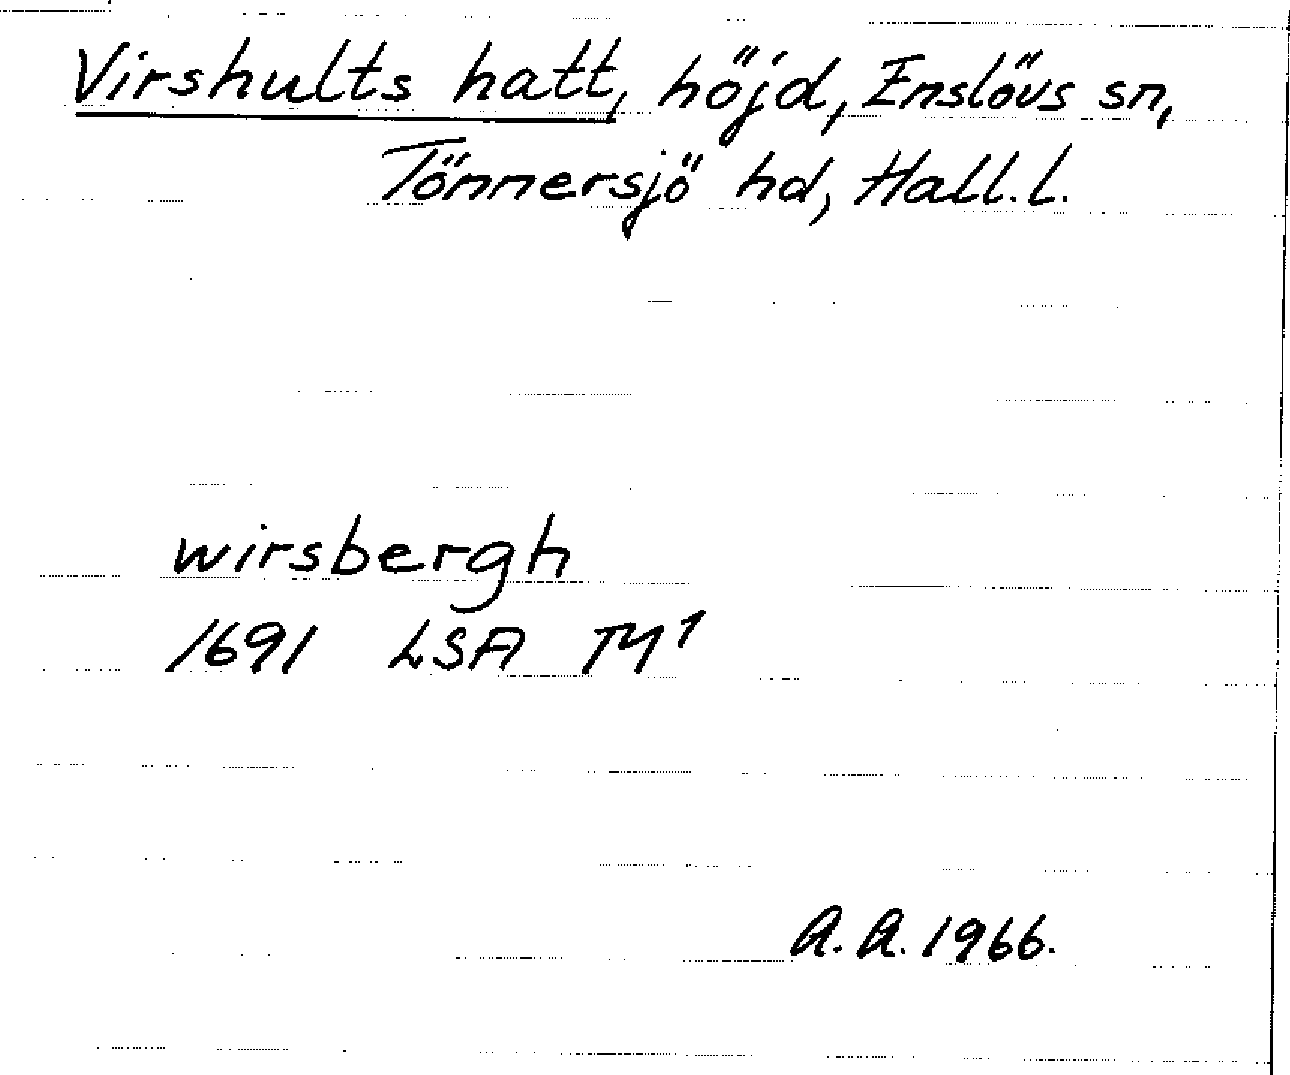 Virshults hatt, höjd, Enslövs sn,
Tönnersjö hd, Hall.l.
wirsbergh
1691 LSA TY¹
A.A. 1966.